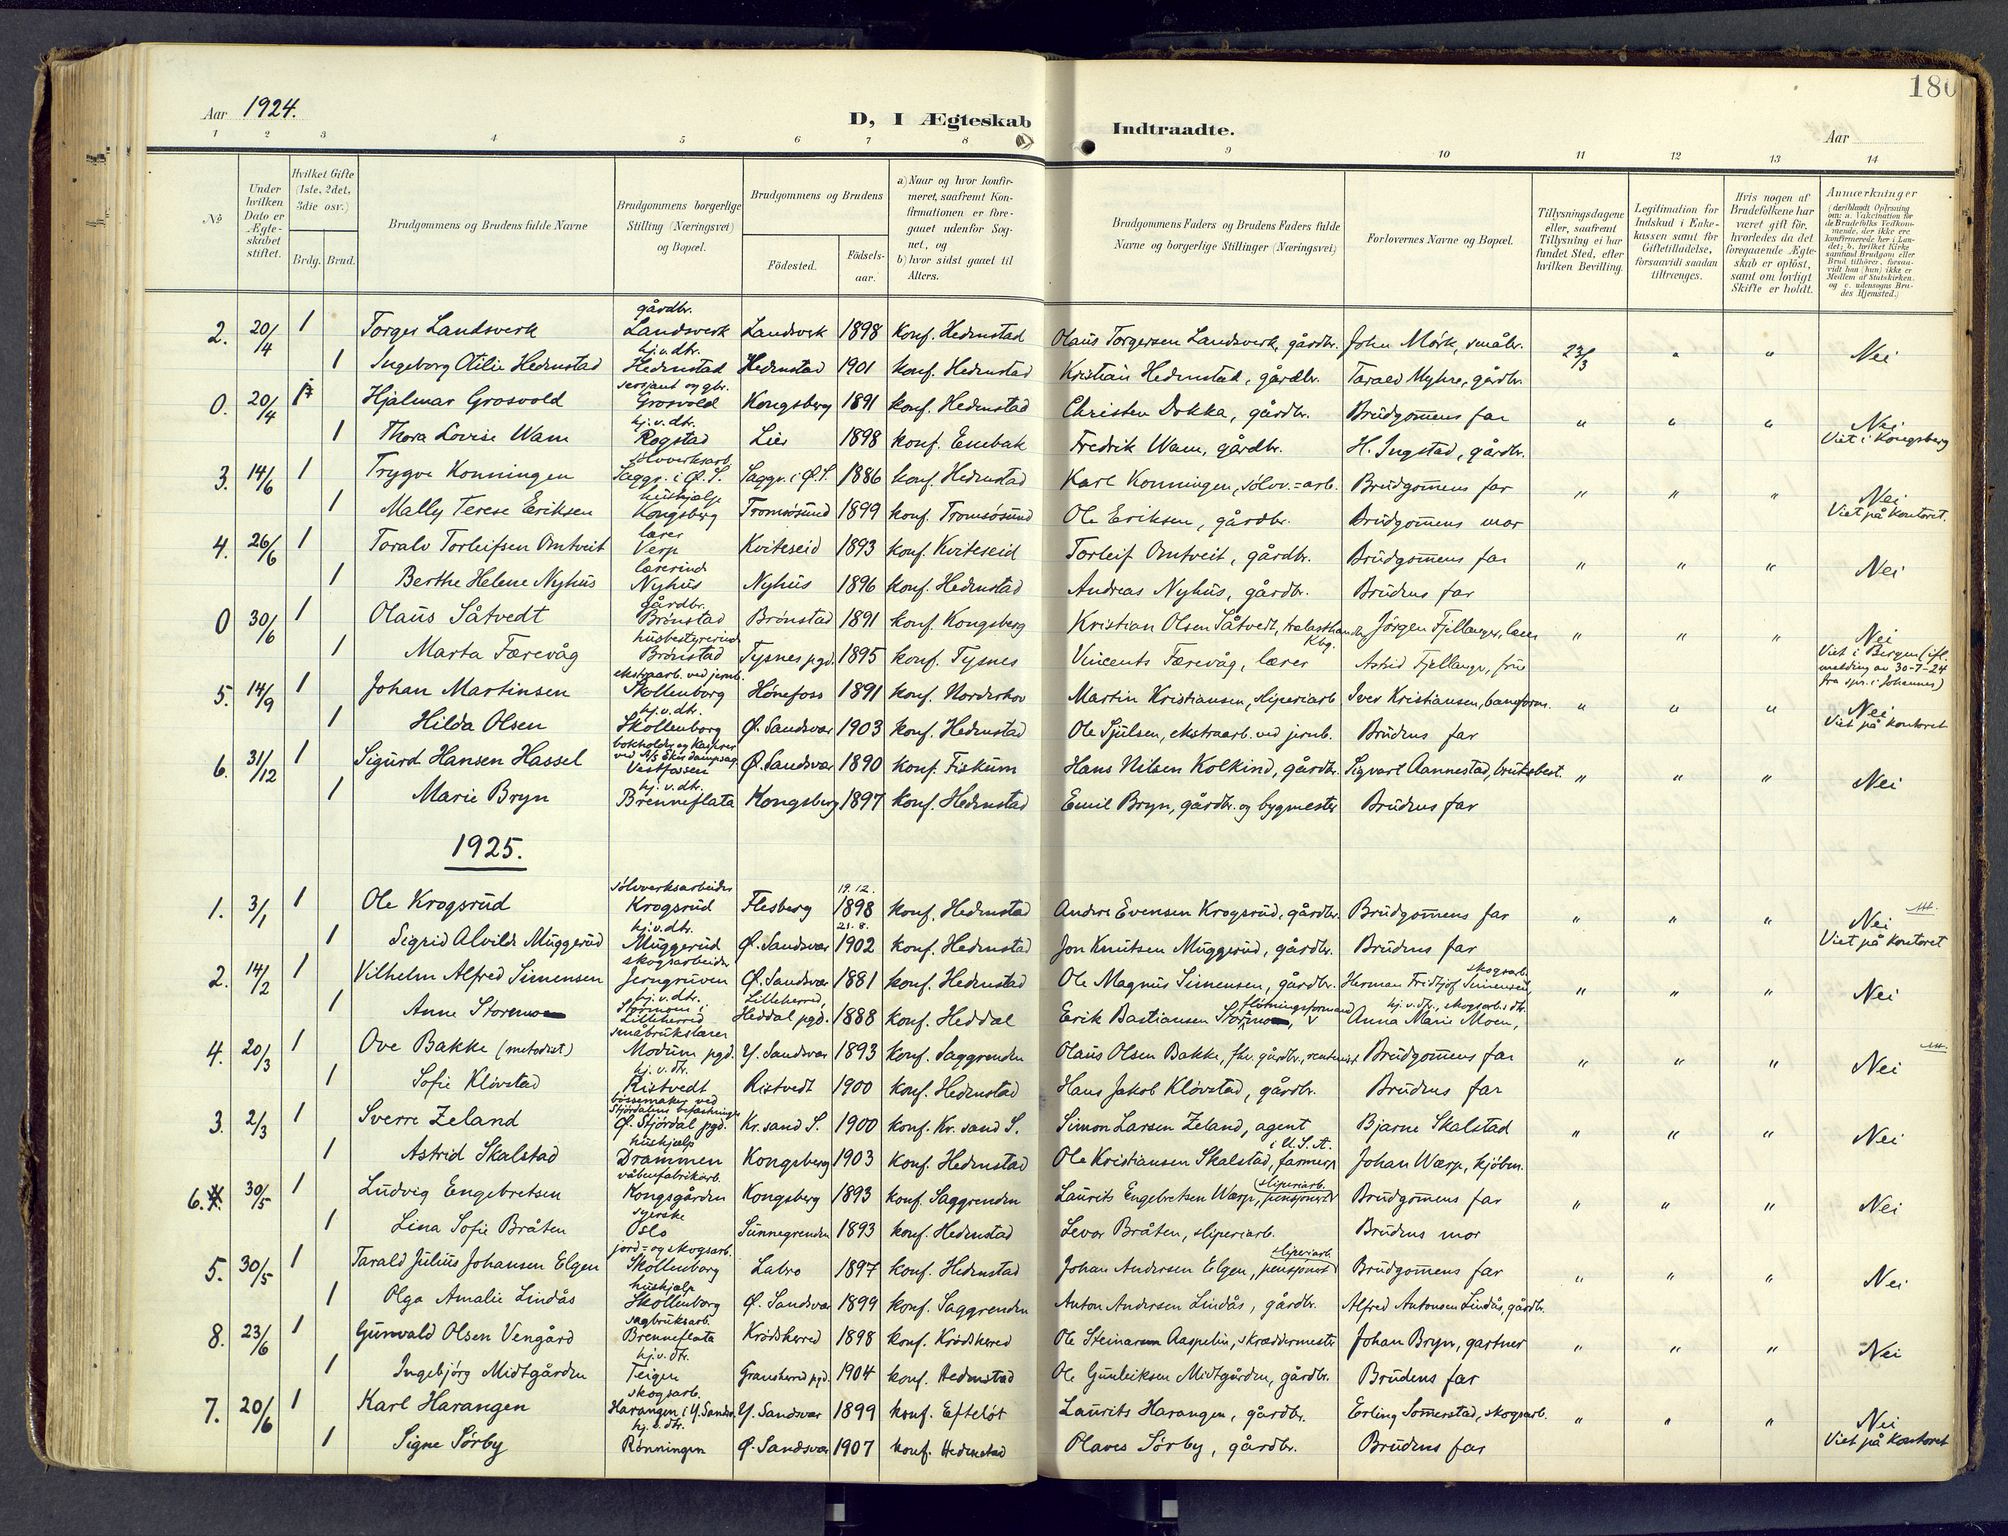 Aar 1924.
D, I Ægteskab Indtraadte.
Aar
180
1 2 3 4 5 6 7 8 9 10 11 12 13 14
No
Under hvilken Dato er Ægteskabet stiftet.
Hvilket Gifte (1ste, 2det, 3die osv.)
Brdg. Brud.
Brudgommens og Brudens fulde Navne
Brudgommens borgerlige Stilling (Næringsvei) og Bopæl.
Brudgommens og Brudens
Fødested.
Fødselsaar.
a) Naar og hvor konfirmeret, saafremt Konfirmationen er foregaaet udenfor Sognet, og
b) hvor sidst gaaet til Alters.
Brudgommens Faders og Brudens Faders fulde Navne og borgerlige Stillinger (Næringsvei)
Forlovernes Navne og Bopæl.
Tillysningsdagene eller, saafremt Tillysning ei har fundet Sted, efter hvilken Bevilling.
Legitimation for Indskud i Enkekassen samt for Giftetilladelse, forsaavidt saadan tiltrænges.
Hvis nogen af Brudefolkene har været gift før, hvorledes da det foregaaende Ægteskab er opløst, samt om lovligt Skifte er holdt.
Anmærkninger (deriblandt Oplysning om: a. Vakcination for de Brudefolks Vedkommende, der ikke ere konfirmerede her i Landet; b. hvilket Kirkesamfund Brudgom eller Brud tilhører, forsaavidt han (hun) ikke er Medlem af Statskirken, og c. udensogns Brudes Hjemsted.)
2. 20/4 1 Torger Landsverk gårdbr. Landsverk Landsverk 1898 konf. Hedenstad Olaus Torgersen Landsverk, gårdbr. John Mørk, småbr. 23/3 " " Nei
1 Ingeborg Otilie Hedenstad hj.v.dtr. Hedenstad Hedenstad 1901 konf. Hedenstad Kristian Hedenstad, gårdbr. Tarald Myhre, gårdbr.
0. 20/4 1 Hjalmar Grosvold sersjant og gbr. Grosvold Kongsberg 1891 konf. Hedenstad Christen Dokka, gårdbr. Brudgommens far " " " Nei
1 Thora Lovise Wam hj.v.dtr. Rogstad Lier 1898 konf. Enebak Fredrik Wam, gårdbr. H. Ingstad, gårdbr. Viet i Kongsberg
3. 14/6 1 Trygve Konningen sølvverksarb. Saggr. i Ø. S. Saggr. i Ø. S. 1886 konf. Hedenstad Karl Konningen, sølvv.=arb. Brudgommens far " " " Nei
1 Mally Terese Eriksen hushjelp Kongsberg Tromsøsund 1899 konf. Tromsøsund Ole Eriksen, gårdbr. Brudgommens mor Viet på kontoret.
4. 26/6 1 Toralv Torleifsen Omtveit lærer Verp Kviteseid 1893 konf. Kviteseid Torleif Omtveit, gårdbr. Brudgommens far " " " Nei
1 Berthe Helene Nyhus lærerinde Nyhus Nyhus 1896 konf. Hedenstad Andreas Nyhus, gårdbr. Brudens far
0 30/6 1 Olaus Såtvedt gårdbr. Brønstad Brønstad 1891 konf. Kongsberg Kristian Olsen Såtvedt, trelasthandler Kbg. Jørgen Fjellanger, lærer " " " Nei
1 Marta Færevåg husbestyrerinde Brønstad Tysnes pgd. 1895 konf. Tysnes Vincents Færevåg, lærer Astrid Fjellanger, frue Viet i Bergen (ifl. melding av 30-7-24 fra spr. i Johannes)
5. 14/9 1 Johan Martinsen ekstraarb. ved jernb. Skollenborg Hønefoss 1891 konf. Norderhov Martin Kristiansen, sliperiarb. Iver Kristiansen, baneform. " " " Nei
1 Hilda Olsen hj.v.dtr. Skollenborg Ø. Sandsvær 1903 konf. Hedenstad Ole Sjulsen, ekstraarb. ved jernb. Brudens far Viet på kontoret
6. 31/12 1 Sigurd Hansen Hassel bokholder og kasserer ved A/S Eker dampsag Vestfossen Ø. Sandsvær 1890 konf. Fiskum Hans Nilsen Kolkind, gårdbr. Sigvart Aannestad, bruksbest. " " " Nei
1 Marie Bryn hj.v.dtr. Brenneflata Kongsberg 1897 konf. Hedenstad Emil Bryn, gårdbr. og bygmester Brudens far
1925.
1. 3/1 1 Ole Krogsrud sølvverksarbeider Krogsrud Flesberg 19.12. 1898 konf. Hedenstad Andres Evensen Krogsrud, gårdbr. Brudgommens far " " " Nei
1 Sigrid Alvilde Muggerud hj.v.dtr. Muggerud Ø. Sandsvær 21.8. 1902 konf. Hedenstad Jon Knutsen Muggerud, gårdbr. Brudens far Viet på kontoret
2. 14/2 1 Vilhelm Alfred Simensen skogsarbeider Jerngruven Ø. Sandsvær 1881 konf. Hedenstad Ole Magnus Simensen, gårdbr. Herman Fridtjof Simensen, skogsarb. " " " Nei
1 Anne Storemo hj.v.dtr. Lilleherred Lilleherred, Heddal pgd. 1888 konf. Heddal Erik Bastiansen fløtningsformand Anna Marie Moen, hj.v.dtr., skogsarb.s dtr.
4. 20/3 1 Ove Bakke (metodist) småbrukslærer Modum pgd. Y. Sandsvær 1893 konf. Saggrenden Olaus Olsen Bakke, fhv. gårdbr., rentenist Brudgommens far " " " Nei
1 Sofie Kløvstad hj.v.dtr. Ristvedt Ristvedt 1900 konf. Hedenstad Hans Jakob Kløvstad, gårdbr. Brudens far
3. 2/3 1 Sverre Zeland bøssemaker ved Stjørdalens befæstninger Ø. Stjørdal pgd. Kr.sand S. 1900 konf. Kr.sand S. Simon Larsen Zeland, agent Bjarne Skalstad " " " Nei
1 Astrid Skalstad hushjelp Drammen Kongsberg 1903 konf. Hedenstad Ole Kristiansen Skalstad, farmer i U.S.A. Johan Wærp, kjøbm.
6. 30/5 1 Ludvig Engebretsen våbenfabrikarb. Kongsgården Kongsberg 1893 konf. Saggrenden Laurits Engebretsen Wærp, sliperiarb. pensjonist Brudgommens far " " " Nei
1 Lina Sofie Bråten syerske Oslo Sunnegrenden 1893 konf. Hedenstad Levor Bråten, sliperiarb. Brudens mor
5. 30/5 1 Tarald Julius Johansen Elgen jord= og skogsarb. Skollenborg Labro 1897 konf. Hedenstad Johan Andersen Elgen, sliperiarb. pensjonist Brudgommens far " " " Nei
1 Olga Amalie Lindås hushjelp Skollenborg Ø. Sandsvær 1899 konf. Saggrenden Anton Andersen Lindås, gårdbr. Alfred Antonsen Lindås, gårdbr.
8. 23/6 1 Gunvald Olsen Vengård sagbruksarb. Brenneflata Krødsherred 1898 konf. Krødsherred Ole Steinarsen Aaspelin, skræddermester Johan Bryn, gartner " " " Nei
1 Ingebjørg Midtgården hj.v.dtr. Teigen Gransherred pgd. 1904 konf. Hedenstad Ole Gunleiksen Midtgården, gårdbr. Brudens far
7. 20/6 1 Karl Harangen skogsarb. Harangen i Y. Sandsv. Y. Sandsvær 1899 konf. Efteløt Laurits Harangen, gårdbr. Erling Somerstad, skogsarb. " " " Nei
1 Signe Sørby hj.v.dtr. Rønningen Ø. Sandsvær 1907 konf. Hedenstad Olaves Sørby, gårdbr. Brudens far Viet på kontoret